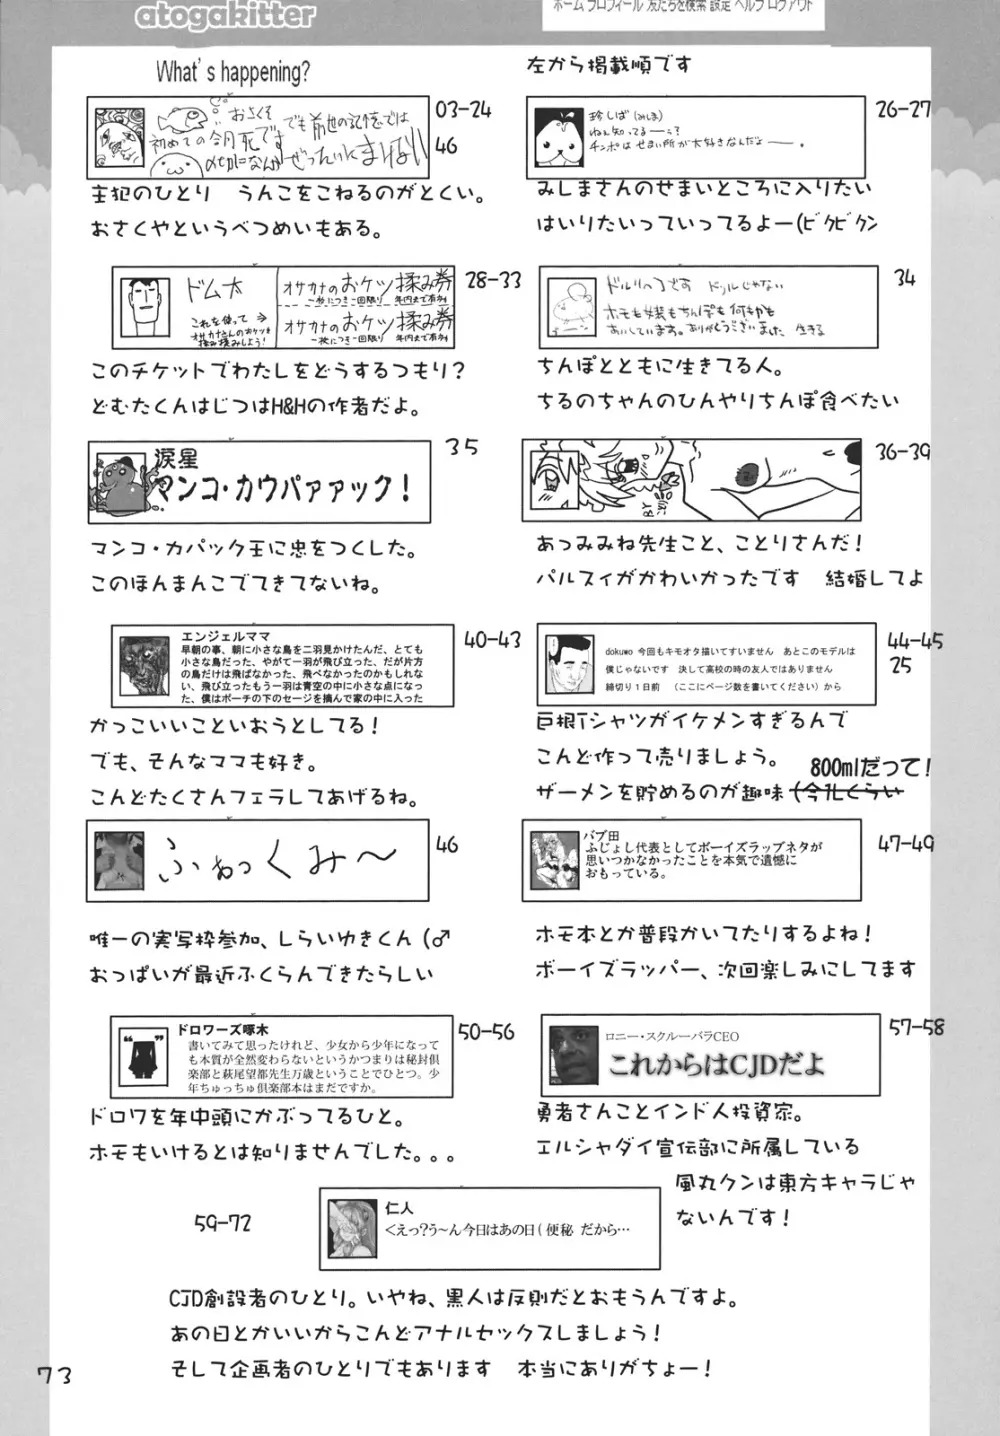 atogakitter
ホーム プロフィール 友だちを検索 設定 ヘルプ ログアウト
What's happening?
左から掲載順です
おさくそ
でも前世の記憶では
初めての
ぜったいにまけない
03-24
46
主犯のひとり　うんこをこねるのがとくい。
おさくやというべつめいもある。
珍しば(みしま)
ねぇ知ってるーっ?
チンポはせまい所が大好きなんだよ――。
26-27
みしまさんのせまいところに入りたい
はいりたいっていってるよー(ビクビクン
ドム太
これを使って⇒
オサカナさんのおケツを
揉み揉みしよう!
オサカナのおケツ揉み券
一枚につき一回限り　年内まで有効
オサカナのおケツ揉み券
一枚につき一回限り　年内まで有効
28-33
このチケットでわたしをどうするつもり?
どむたくんはじつはH&Hの作者だよ。
ドリルじゃない
ホモも女装もちんぽも何もかも
あいしています。ありがとうございました
34
ちんぽとともに生きてる人。
ちるのちゃんのひんやりちんぽ食べたい
涙星
マンコ・カウパァァック!
35
マンコ・カパック王に忠をつくした。
このほんまんこでできてないね。
36-39
あつみみね先生こと、ことりさんだ!
パルスィがかわいかったです　結婚してよ
エンジェルママ
早朝の事、朝に小さな鳥を二羽見かけたんだ、とても
小さな鳥だった、やがて一羽が飛び立った、だが片方
の鳥だけは飛ばなかった、飛べなかったのかもしれな
い、飛び立ったもう一羽は青空の中に小さな点になっ
た、僕はポーチの下のセージを摘んで家の中に入った
40-43
かっこいいこといおうとしてる!
でも、そんなママも好き。
こんどたくさんフェラしてあげるね。
dokuwo 今回もキモオタ描いてすいません　あとこのモデルは
僕じゃないです　決して高校の時の友人ではありません
締切り1日前　(ここにページ数を書いてください) から
44-45
25
巨根Tシャツがイケメンすぎるんで
こんど作って売りましょう。
800mlだって!
ザーメンを貯めるのが趣味(今1Lくらい
ふぁっくみ～
46
唯一の実写枠参加、しらいゆきくん(♂
おっぱいが最近ふくらんできたらしい
バブ田
ふじょし代表としてボーイズラップネタが
思いつかなかったことを本気で遺憾に
おもっている。
47-49
ホモ本とか普段かいてたりするよね!
ボーイズラッパー、次回楽しみにしてます
ドロワーズ啄木
書いてみて思ったけれど、少女から少年になって
も本質が全然変わらないというかつまりは秘封倶
楽部と萩尾望都先生万歳ということでひとつ。少
年ちゅっちゅ倶楽部本はまだですか。
50-56
ドロワを年中頭にかぶってるひと。
ホモもいけるとは知りませんでした。。。
ロニー・スクルーバラCEO
これからはCJDだよ
57-58
勇者さんことインド人投資家。
エルシャダイ宣伝部に所属している
風丸クンは東方キャラじゃ
ないんです!
59-72
仁人
くえっ?う～ん今日はあの日(便秘 だから…
CJD創設者のひとり。いやね、黒人は反則だとおもうんですよ。
あの日とかいいからこんどアナルセックスしましょう!
そして企画者のひとりでもあります　本当にありがちょー!
73